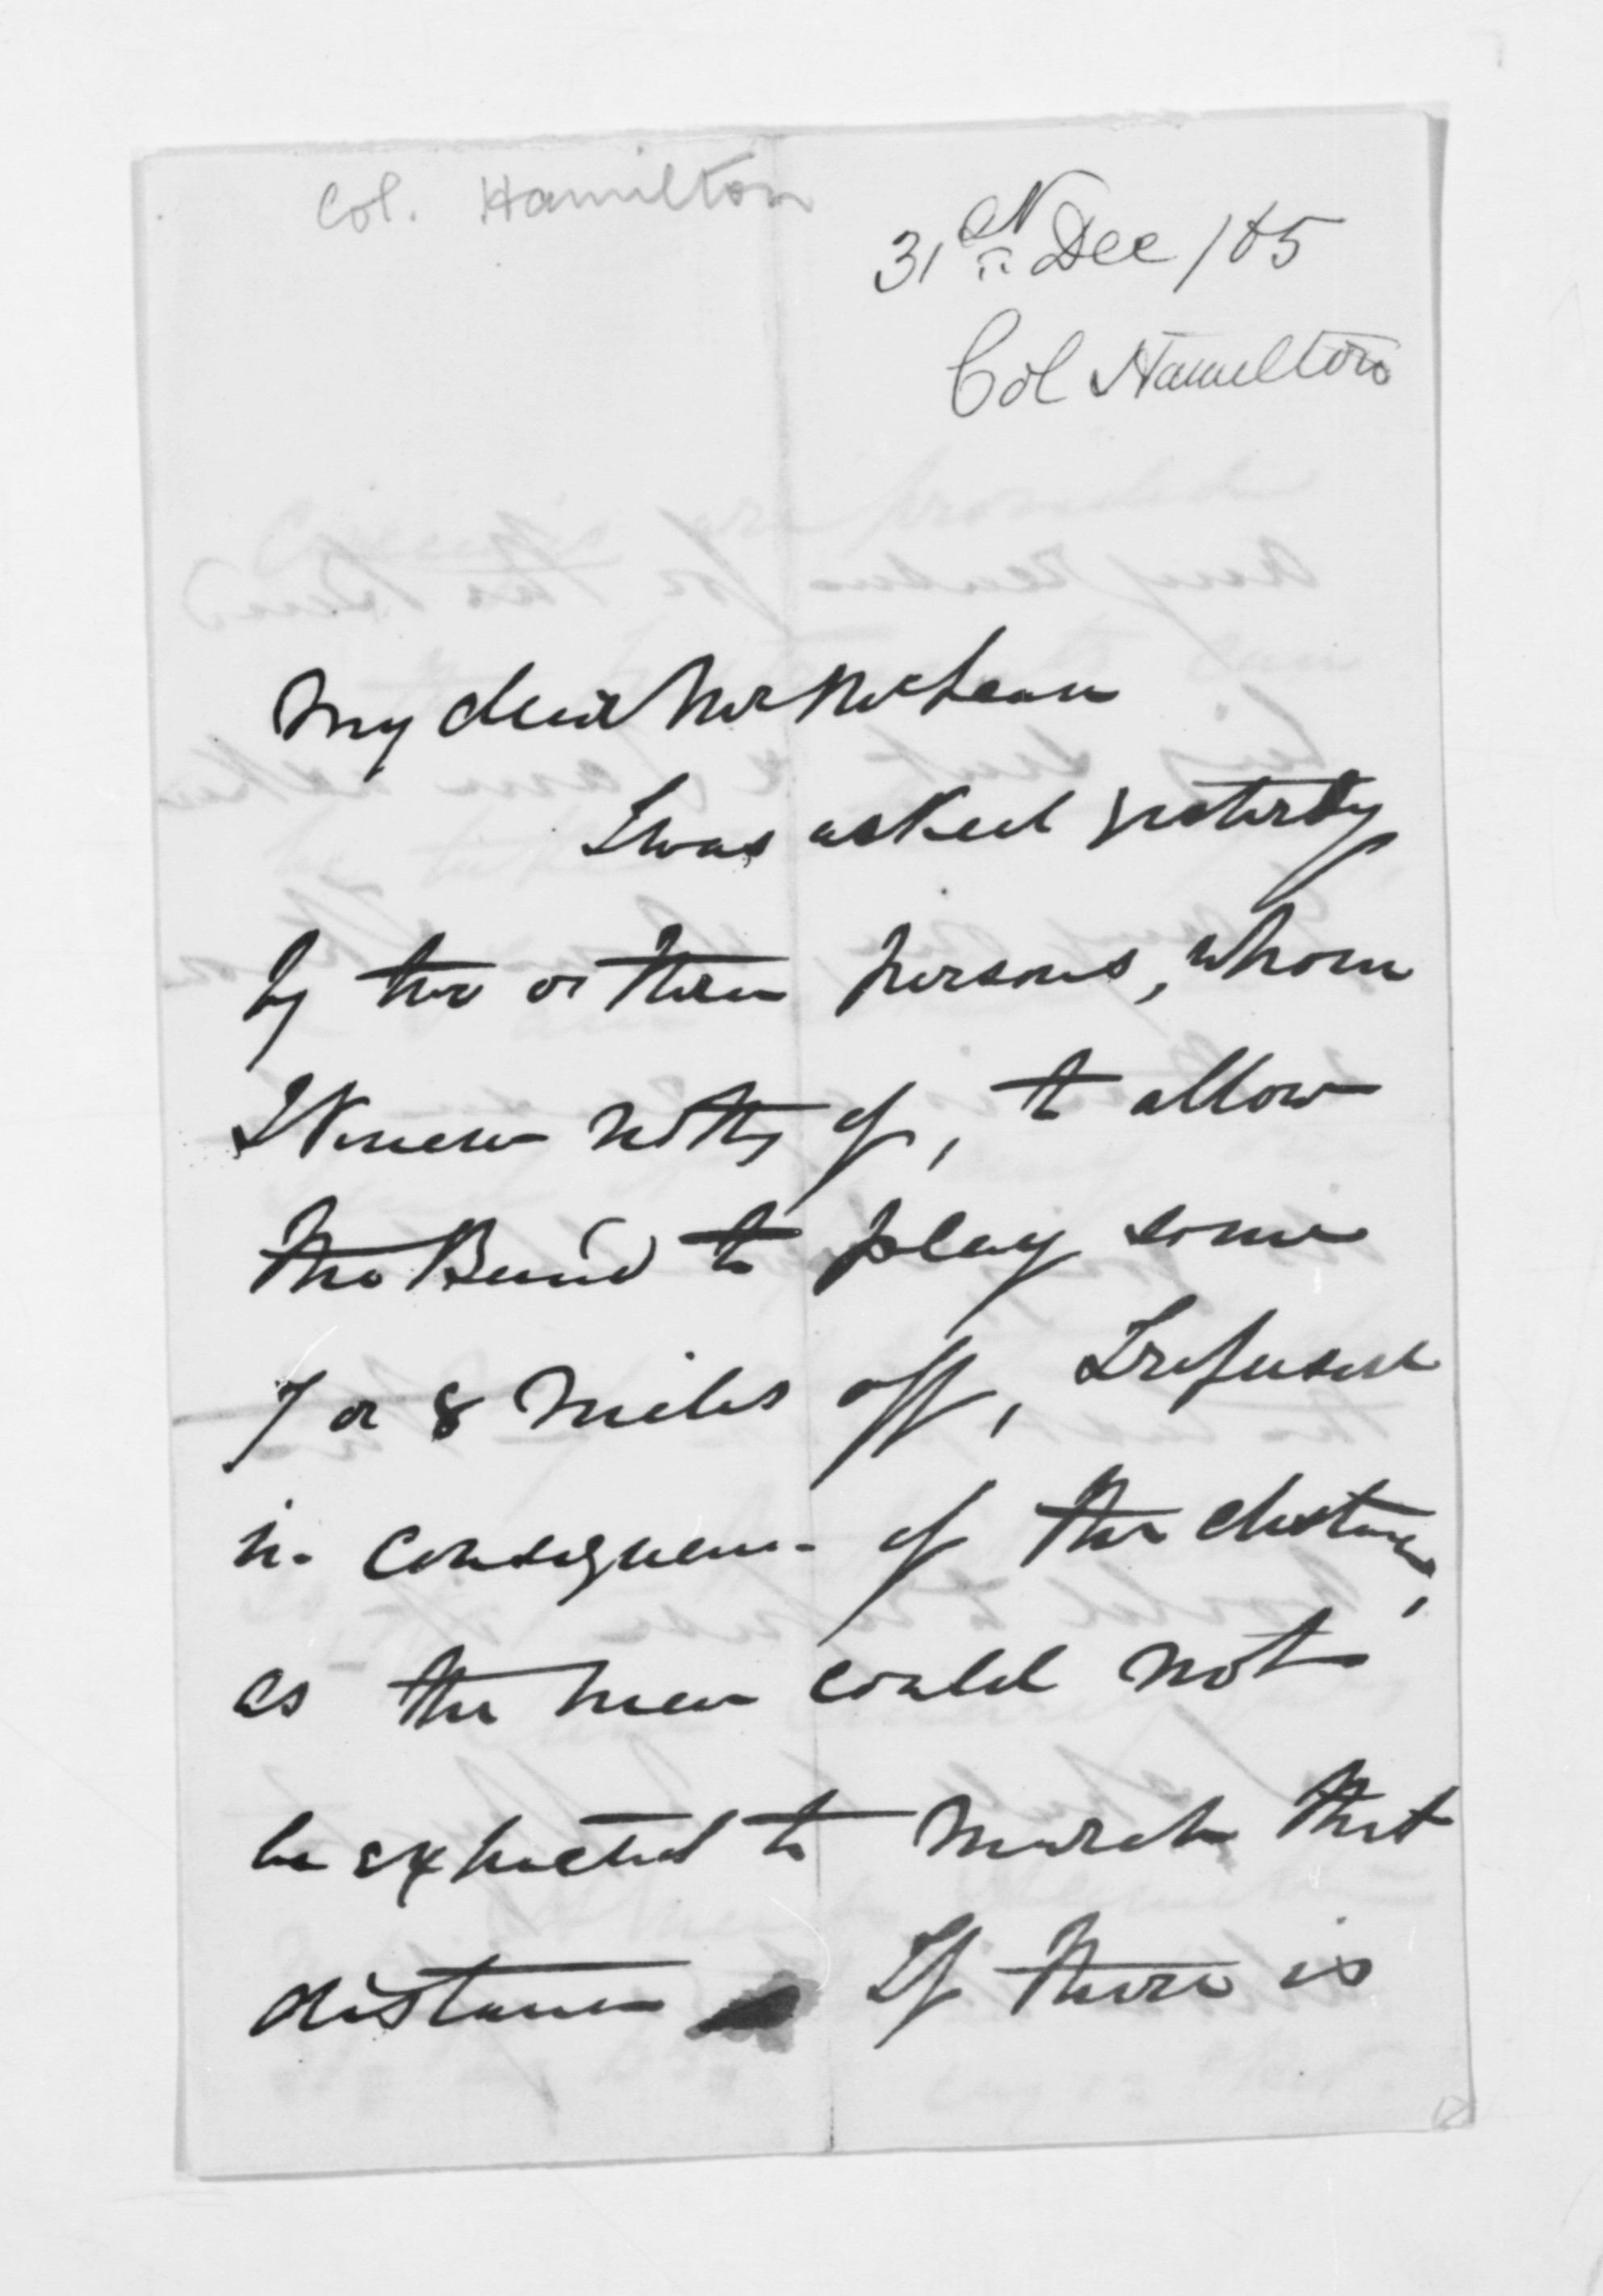 Col. Hamilton
31st Dec /65
Col Hamilton
My dear Mr McLean
I was asked yesterday
by two or three persons, whom
I knew nothg of, to allow
the Band to play some
7 or 8 miles off, I refused
in consequence of the distance,
as the men could not
be expected to march that
distance If there is